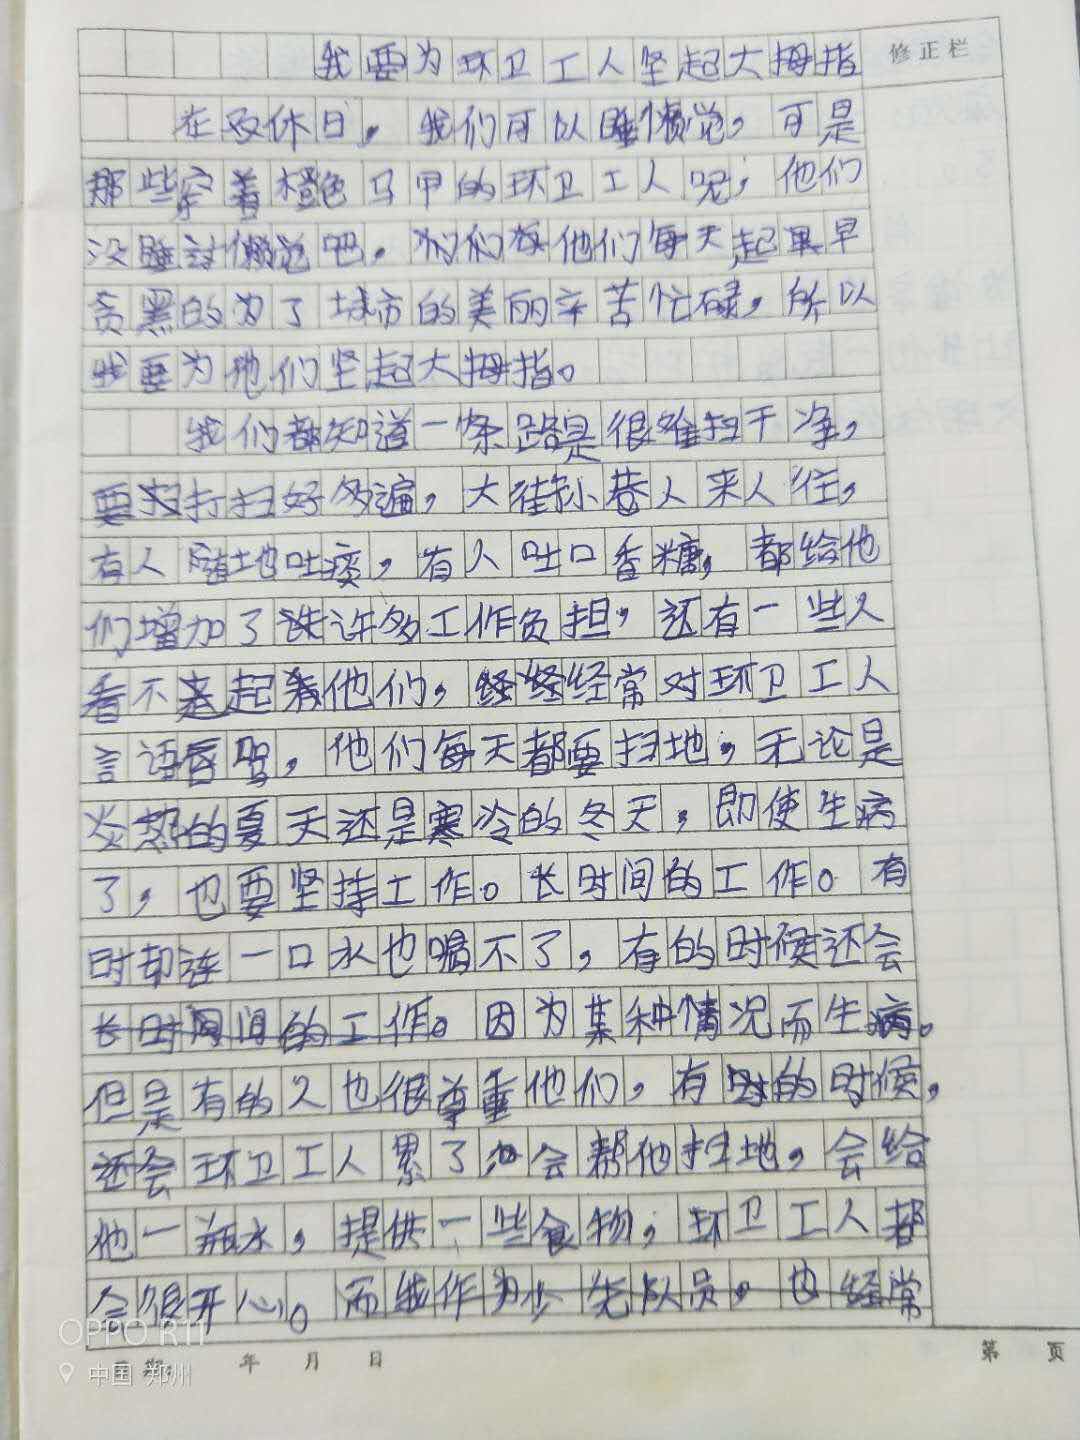 我要为环卫工人坚起大拇指
修正栏
在双休日，我们可以睡懒觉，可是
那些穿着橙色马甲的环卫工人呢，他们
没睡过懒觉吧，他们每天起早
贪黑的为了城市的美丽辛苦忙碌，所以
我要为他们坚起大拇指。
我们都知道一条路是很难扫干净，
要打扫好多遍，大街小巷人来人往，
有人随地吐痰，有人吐口香糖，都给他
们增加了许多工作负担，还有一些人
看不起他们，经常对环卫工人
言语辱骂，他们每天都要扫地，无论是
炎热的夏天还是寒冷的冬天，即使生病
了，也要坚持工作。长时间的工作。有
时却连一口水也喝不了，有的时候还会
长时间的工作。因为某种情况而生病。
但是有的人也很尊重他们，有的时候，
还会环卫工人累了也会帮他扫地，会给
他一瓶水，提供一些食物，环卫工人都
会很开心。而我作为少先队员，也经常
年 月 日
第 页
OPPO R11
中国 郑州